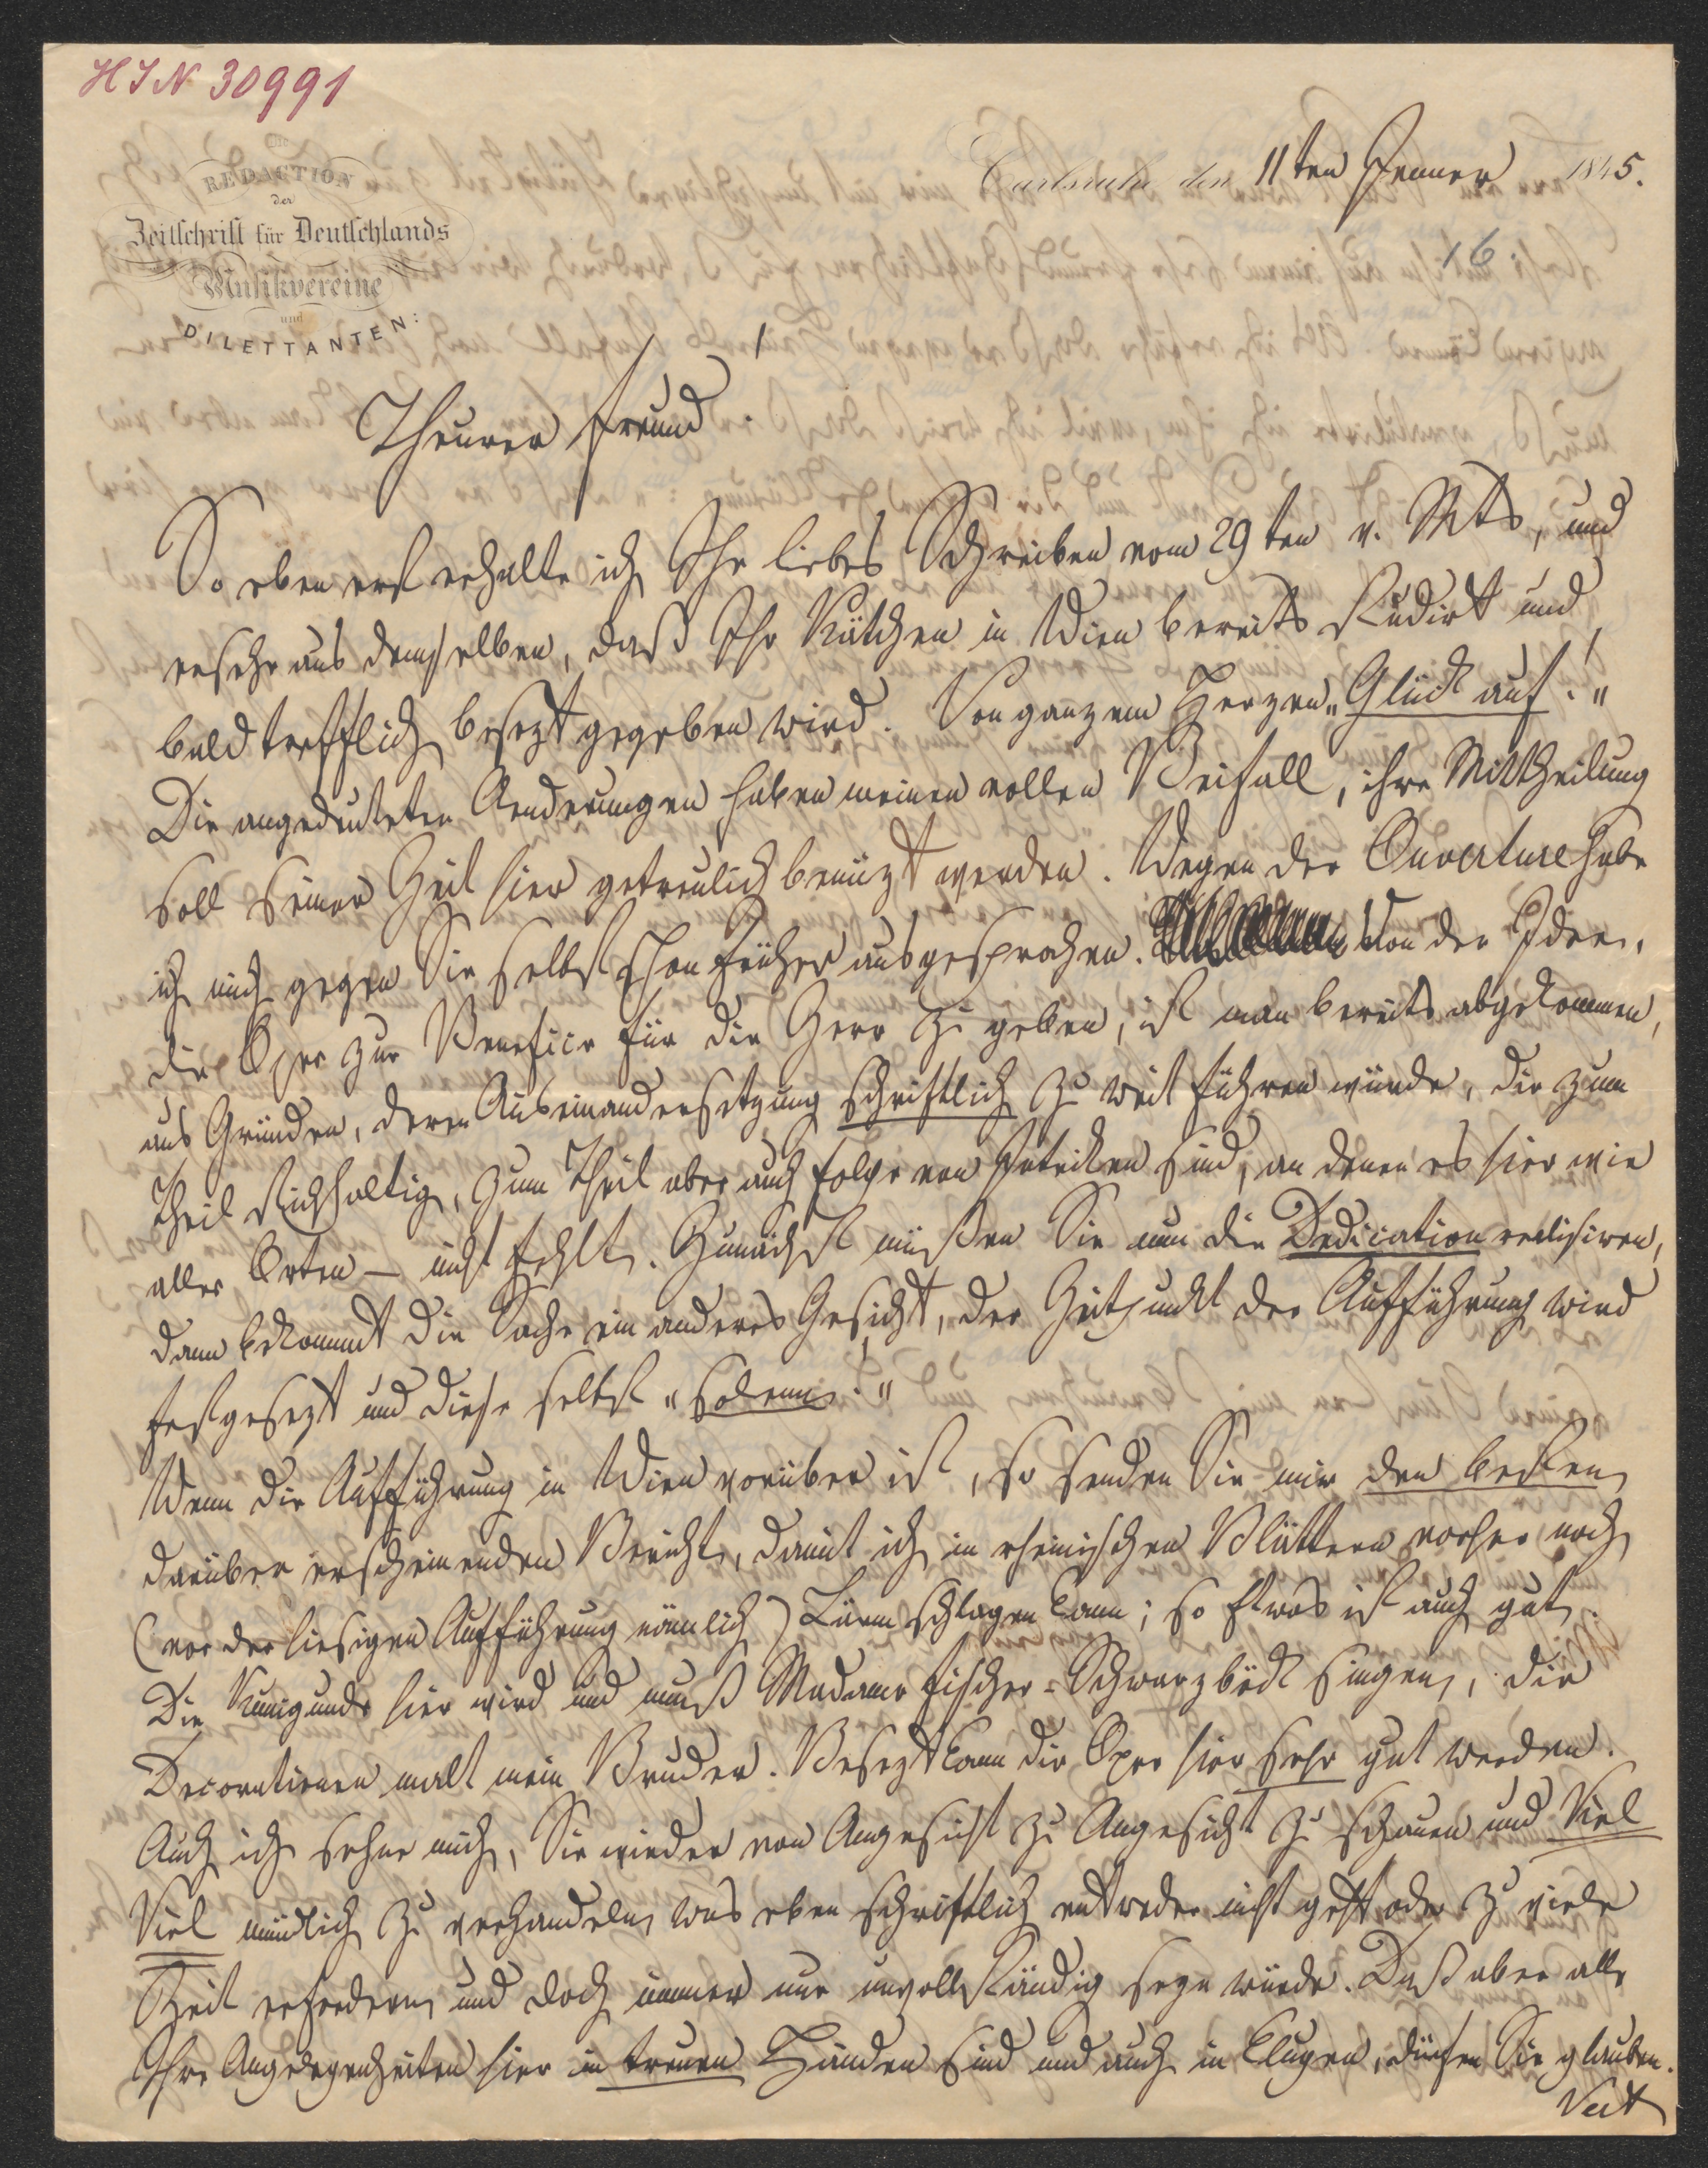 HIN 30991
Die
REDACTION
der
Zeitschrift für Deutschlands
Musikvereine
und
DILETTANTEN:
Carlsruhe den 11ten Jenner 1845.
16
Theurer Freund!
So eben erst erhalte ich Ihr liebes Schreiben vom 29ten v. Mts, und
ersehe aus demselben, daß Ihr Kätchen in Wien bereits studirt und
bald trefflich besezt gegeben wird. Von ganzem Herzen „Glück auf!"
Die angedeuteten Aenderungen haben meinen vollen Beifall, ihre Mittheilung
soll seiner Zeit hier getreulich benüzt werden. Wegen der Ouverture habe
ich mich gegen Sie selbst schon früher ausgesprochen. Von der Idee,
die Oper zur Benefice für die Herr zu geben, ist man bereits abgekommen,
aus Gründen, deren Auseinandersetzung schriftlich zu weit führen würde, die zum
Theil stichhaltig, zum Theil aber auch Folge von Intriken sind, an denen es hier wie
aller Orten — nicht fehlt. Zunächst müßen Sie nun die Dedication realisiren,
dann bekommt die Sache ein anderes Gesicht, der Zeitpunkt der Aufführung wird
festgesezt und diese selbst „solenn."
Wenn die Aufführung in Wien vorüber ist, so senden Sie mir den besten
darüber erscheinenden Bericht, damit ich in rheinischen Blättern vorher noch
(vor der hiesigen Aufführung nämlich) Lärm schlagen kann; so Etwas ist auch gut.
Die Kunigunde hier wird und muß Madame Fischer-Schwarzböck singen, die
Decorationen malt mein Bruder. Besezt kann die Oper hier sehr gut werden.
Auch ich sehne mich, Sie wieder von Angesicht zu Angesicht zu schauen und Viel
Viel mündlich zu verhandeln was eben schriftlich entweder nicht geht oder zu viele
Zeit erfordern und doch immer nur unvollständig seyn würde. Daß aber alle
Ihre Angelegenheiten hier in treuen Händen sind und auch in klugen, dürfen Sie glauben.